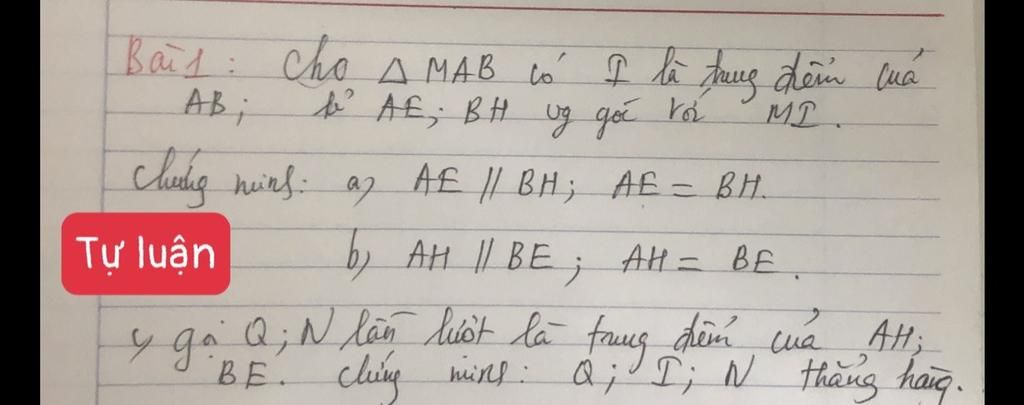 Bài 1: Cho △ MAB có I là trung điểm của
AB; kẻ AE; BH vg góc với MI.
Chứng minh: a) AE // BH; AE = BH.
Tự luận
b) AH // BE; AH = BE.
c) gọi Q; N lần lượt là trung điểm của AH;
BE. Chứng minh: Q; I; N thẳng hàng.